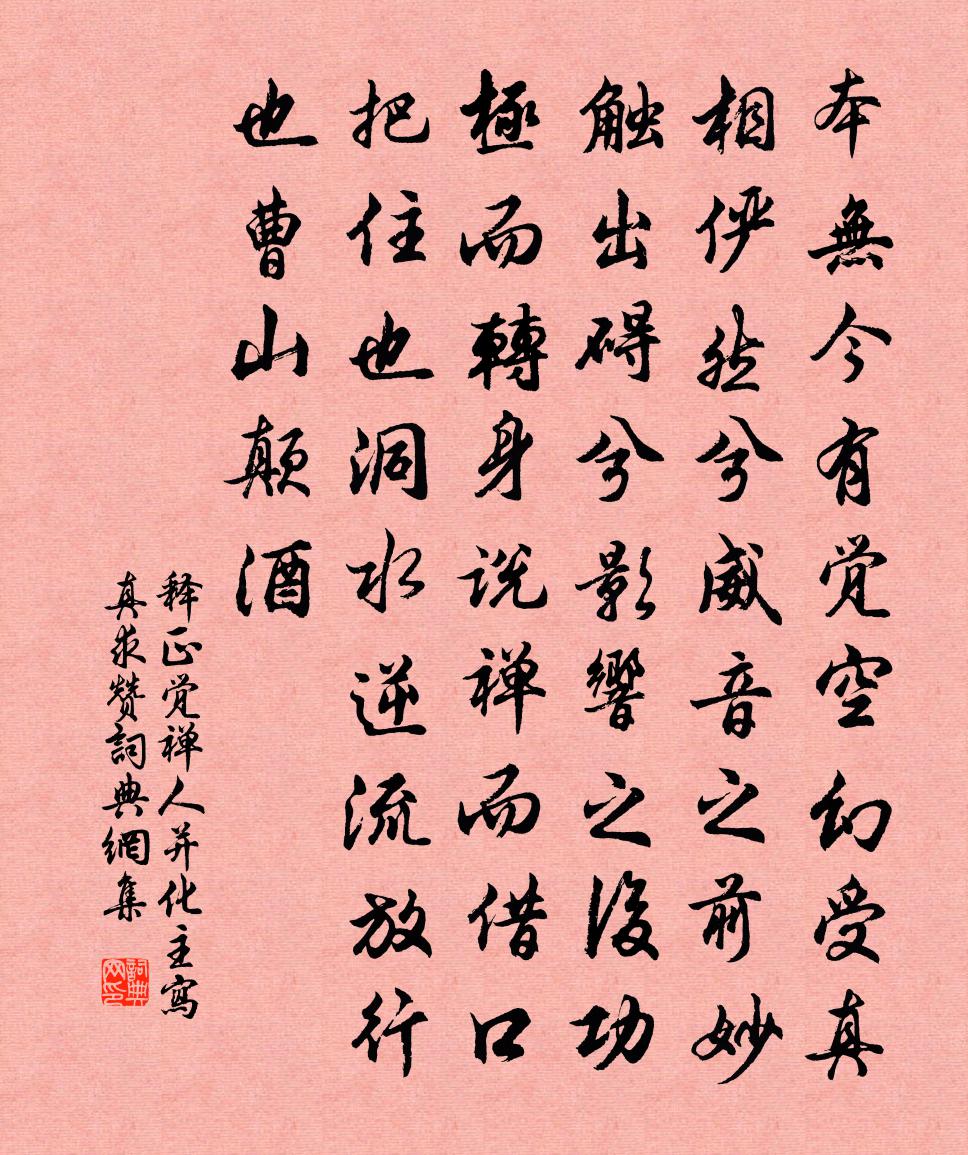 本無今有觉空幻受真
相俨然兮威音之前妙
触出碍兮影響之後功
極而轉身说禅而借口
把住也洞水逆流放行
也曹山颠酒
释正觉禅人并化主寫
真求赞詞典網集
詞典网印